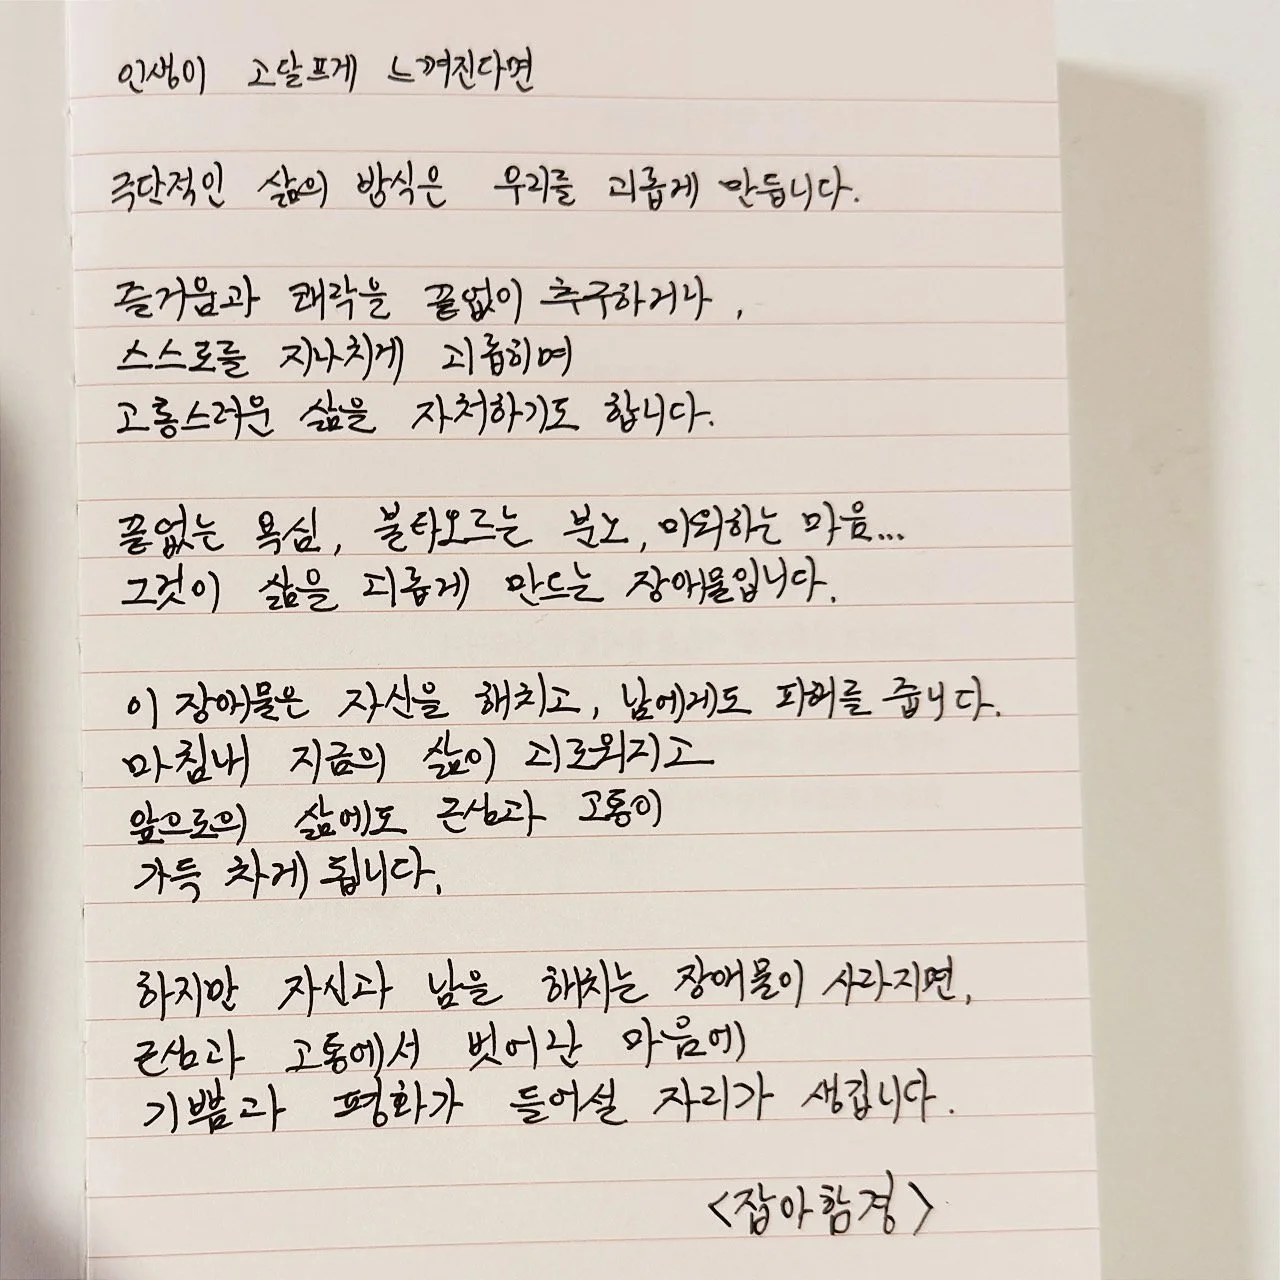 인생이 고달프게 느껴진다면
극단적인 삶의 방식은 우리를 괴롭게 만듭니다.
즐거움과 쾌락을 끝없이 추구하거나,
스스로를 지나치게 괴롭히며
고통스러운 삶을 자처하기도 합니다.
끝없는 욕심, 불타오르는 분노, 미워하는 마음...
그것이 삶을 괴롭게 만드는 장애물입니다.
이 장애물은 자신을 해치고, 남에게도 피해를 줍니다.
마침내 지금의 삶이 괴로워지고
앞으로의 삶에도 근심과 고통이
가득 차게 됩니다.
하지만 자신과 남을 해치는 장애물이 사라지면,
근심과 고통에서 벗어난 마음에
기쁨과 평화가 들어설 자리가 생깁니다.
<잡아함경>